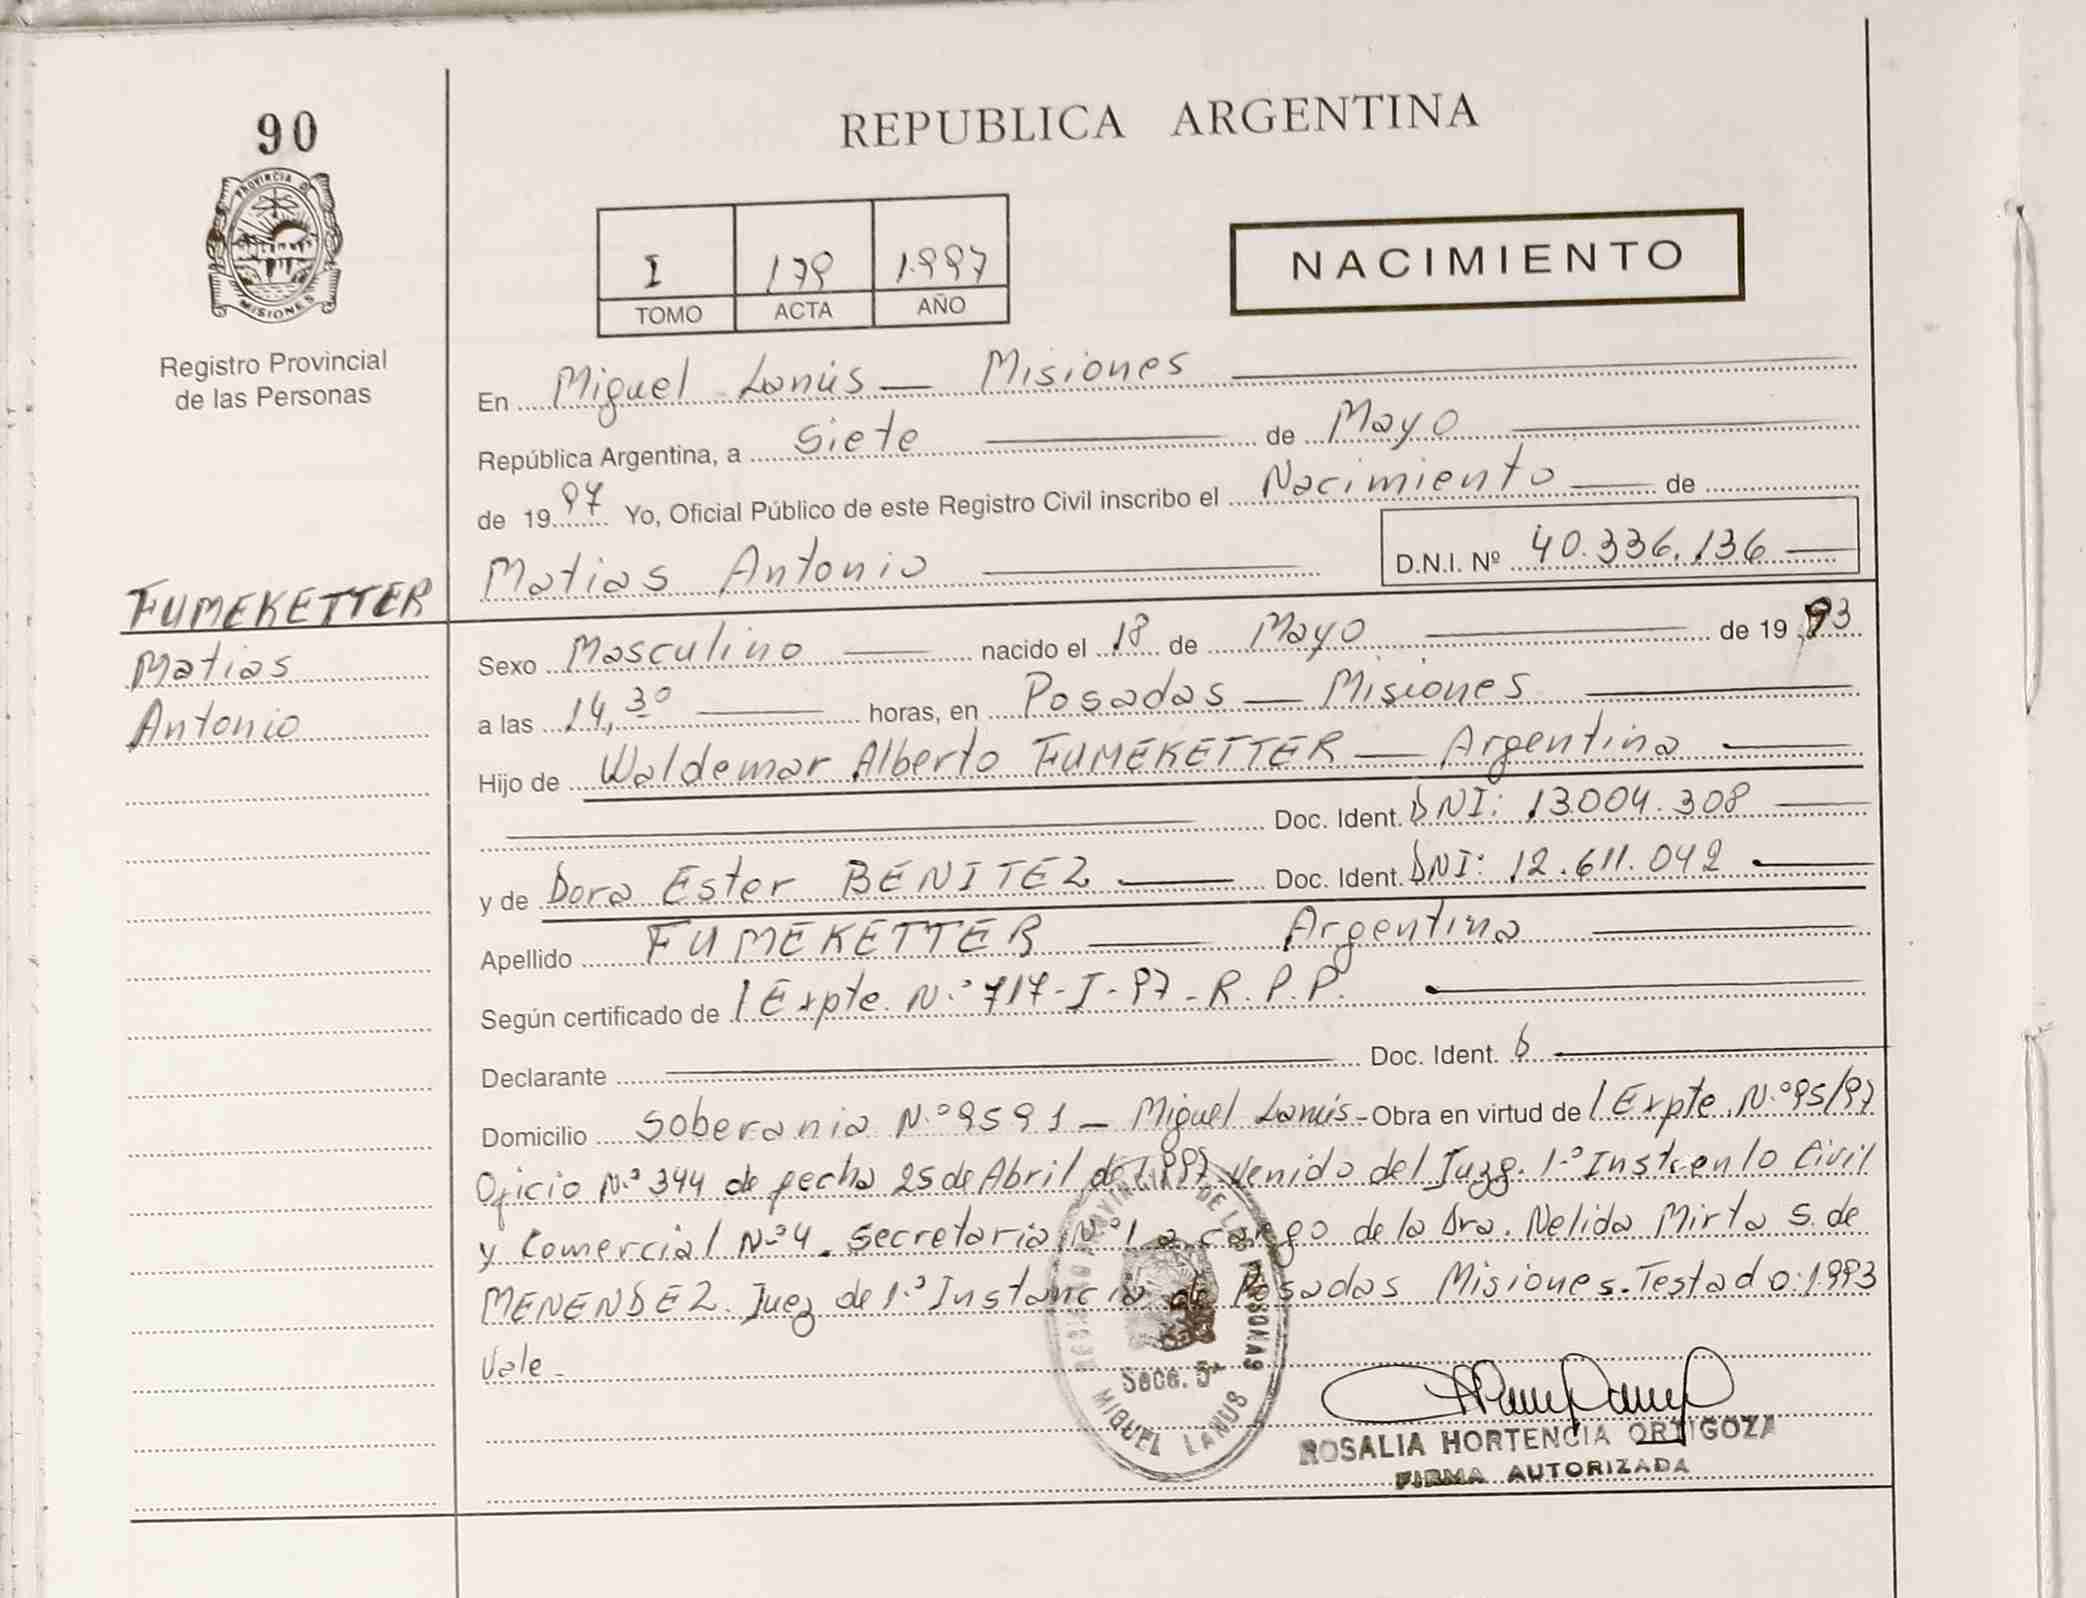 90
PROVINCIA DE
MISIONES
Registro Provincial
de las Personas
FUMEKETTER
Matias
Antonio
REPUBLICA ARGENTINA
I 179 1.997
TOMO ACTA AÑO
NACIMIENTO
En Miguel Lanús — Misiones
República Argentina, a siete de Mayo
de 1997 Yo, Oficial Público de este Registro Civil inscribo el Nacimiento de
Matias Antonio D.N.I. Nº 40.336.136
Sexo Masculino nacido el 18 de Mayo de 1993
a las 14,30 horas, en Posadas — Misiones
Hijo de Waldemar Alberto FUMEKETTER — Argentina
Doc. Ident. DNI: 13.004.308
y de Dora Ester BENITEZ Doc. Ident. DNI: 12.611.042
Apellido FUMEKETTER Argentina
Según certificado de / Expte. N.º 717-I-97-R.P.P.
Declarante Doc. Ident.
Domicilio Soberania N.º 9591 — Miguel Lanús - Obra en virtud de / Expte. N.º 95/97
Oficio N.º 344 de fecha 25 de Abril de 1.997 venido del Juzg. 1.ª Inst. en lo Civil
y Comercial N.º 4. Secretaria N.º 1 a cargo de la Dra. Nelida Mirta S. de
MENENDEZ. Juez de 1.ª Instancia de Posadas Misiones. Testado: 1.993
Vale.
REGISTRO PROVINCIAL DE LAS PERSONAS
Secc. 5ª
MIGUEL LANUS
ROSALIA HORTENCIA ORTIGOZA
FIRMA AUTORIZADA